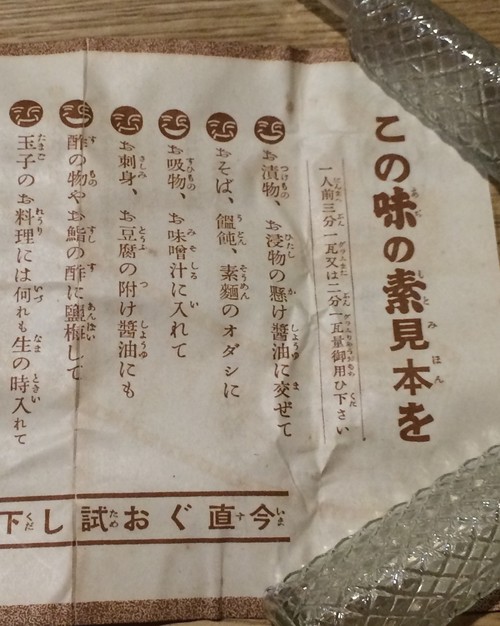 この味の素見本を
一人前三分一瓦又は二分一瓦量御用ひ下さい
お漬物、お浸物の懸け醬油に交ぜて
おそば、饂飩、素麵のオダシに
お吸物、お味噌汁に入れて
お刺身、お豆腐の附け醬油にも
酢の物やお鮨の酢に鹽梅して
玉子のお料理には何れも生の時入れて
今直ぐお試し下